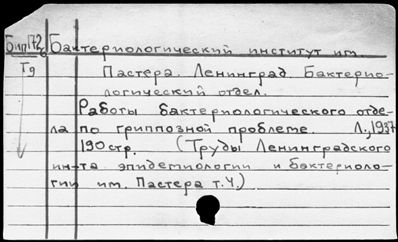 Бип 172б Бактериологический институт им.
Тд Пастера. Ленинград. Бактерио-
логический отдел.
Работы бактериологического отде-
ла по гриппозной проблеме. Л., 1937
190 стр. (Труды Ленинградского
ин-та эпидемиологии и бактериоло-
гии им. Пастера т.4.)